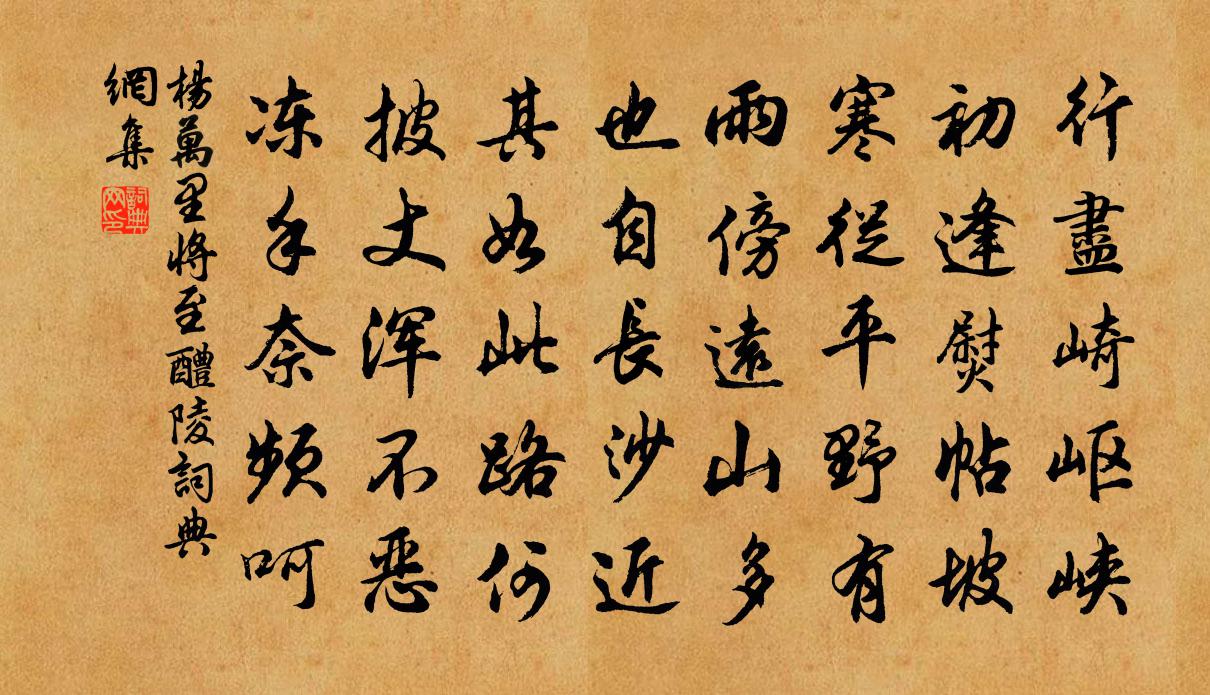 行盡崎岖峡
初逢熨帖坡
寒從平野有
雨傍遠山多
也自長沙近
其如此路何
披丈浑不恶
冻手奈频呵
楊萬里将至醴陵詞典
網集
詞典
网印